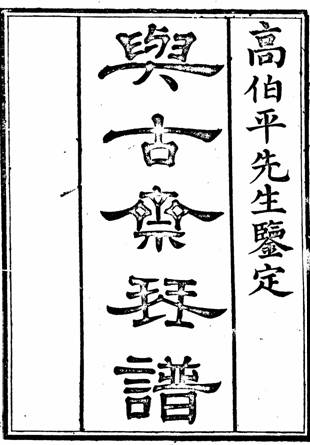 高伯平先生鑒定
與古齋琴譜